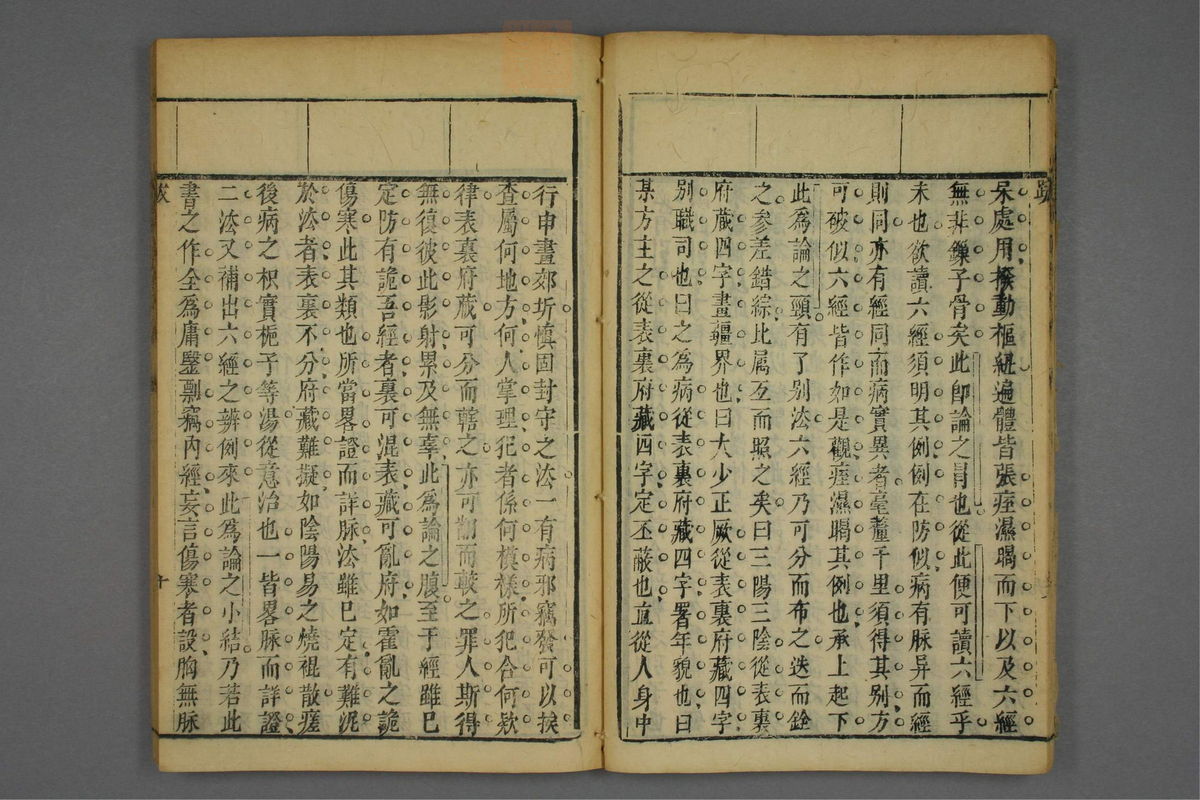 跋
呆處用撥動樞紐遍體皆張痓濕暍而下以及六經
無非鑠子骨矣此卽論之胃也從此便可讀六經乎
未也欲讀六經須明其例例在防似病有脉异而經
則同亦有經同而病實異者毫釐千里須得其别方
可破似六經皆作如是觀痓濕暍其例也承上起下
此為論之頸有了别法六經乃可分而布之迭而銓
之參差錯綜比属互而照之矣曰三陽三陰從表裏
府藏四字畫疆界也曰大少正厥從表裏府藏四字
别職司也曰之為病從表裏府藏四字署年貌也曰
某方主之從表裏府藏四字定丕蔽也直從人身中
行申畫郊圻慎固封守之法一有病邪竊發可以挨
查屬何地方何人掌理犯者係何模樣所犯合何欵
律表裏府藏可分而轄之亦可
而
之罪人斯得
無復彼此影射累及無辜此為論之腹至于經雖已
定防有詭吾經者裏可混表藏可亂府如霍亂之詭
傷寒此其類也所當畧證而詳脉法雖已定有難泥
於法者表裏不分府藏難擬如陰陽易之燒裩散瘥
後病之枳實梔子等湯從意治也一皆畧脉而詳證
二法又補出六經之辨例來此為論之小結乃若此
書之作全為庸鑒剽竊內經妄言傷寒者設胸無脉
跋
十